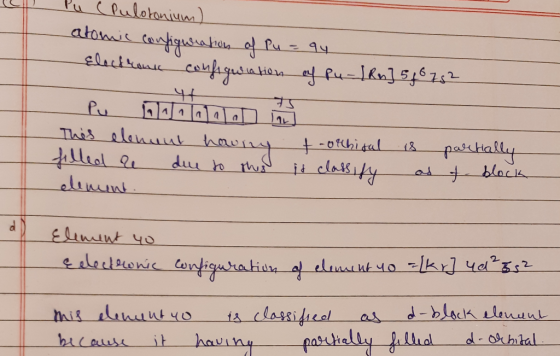 (c) Pu (Pulotonium)
atomic configuration of Pu = 94
Electronic configuration of Pu - [Rn] 5f6 7s2
4f 7s
Pu 1 1 1 1 1 1 1L
This element having f-orbital is partially
filled & due to this it classify as f-block
element.
d) Element 40
Electronic configuration of element 40 = [Kr] 4d2 5s2
This element 40 is classified as d-block element
because it having partially filled d-orbital